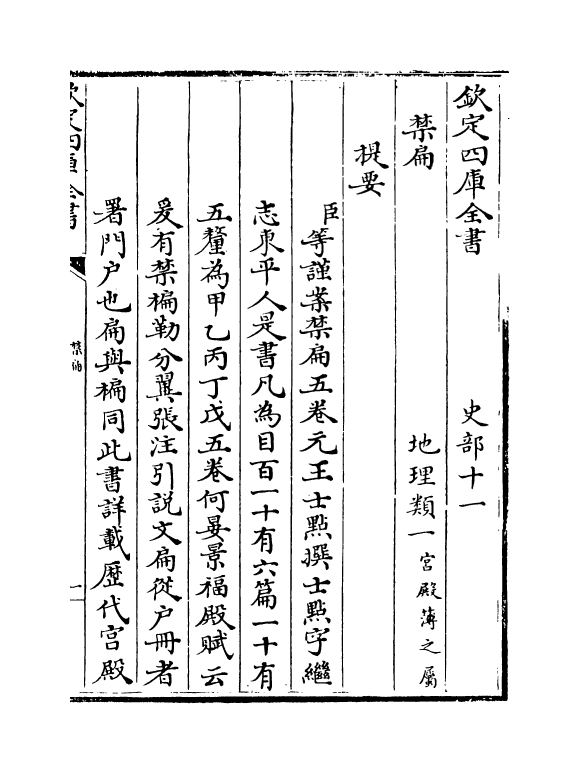 欽定四庫全書　史部十一
禁扁　地理類一宮殿薄之屬
提要
臣等謹案禁扁五卷元王士㸃撰士㸃字繼
志東平人是書凡為目百一十有六篇一十有
五釐為甲乙丙丁戊五卷何晏景福殿賦云
爰有禁楄勒分翼張注引説文扁從户冊者
署門户也扁與楄同此書詳載歴代宫殿
欽定四庫全書
禁扁
一